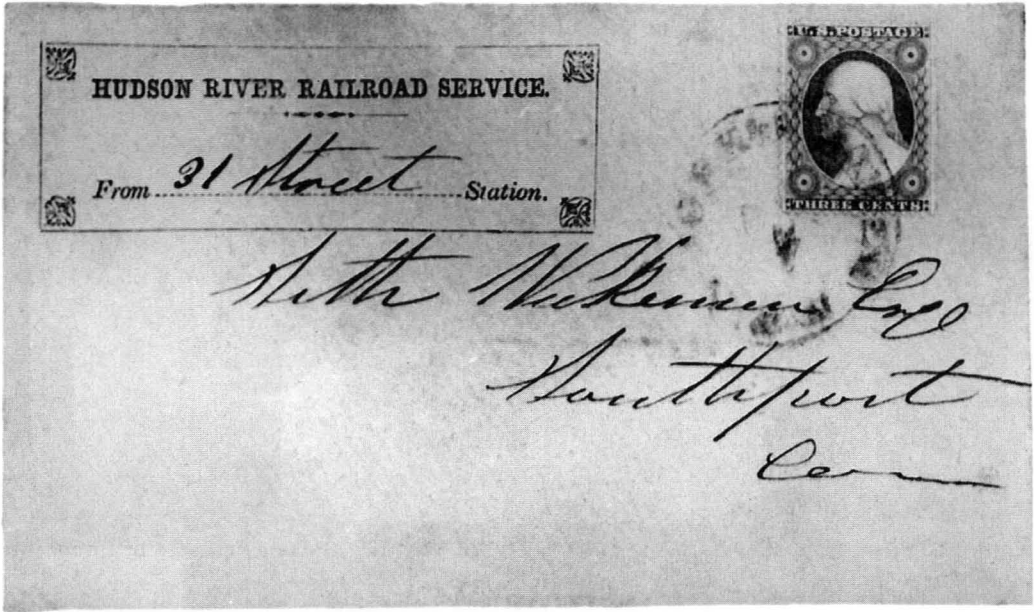 HUDSON RIVER RAILROAD SERVICE.
From 31 Street Station.
U.S. POSTAGE
THREE CENTS
Seth Wakeman Esq
Southport
Con